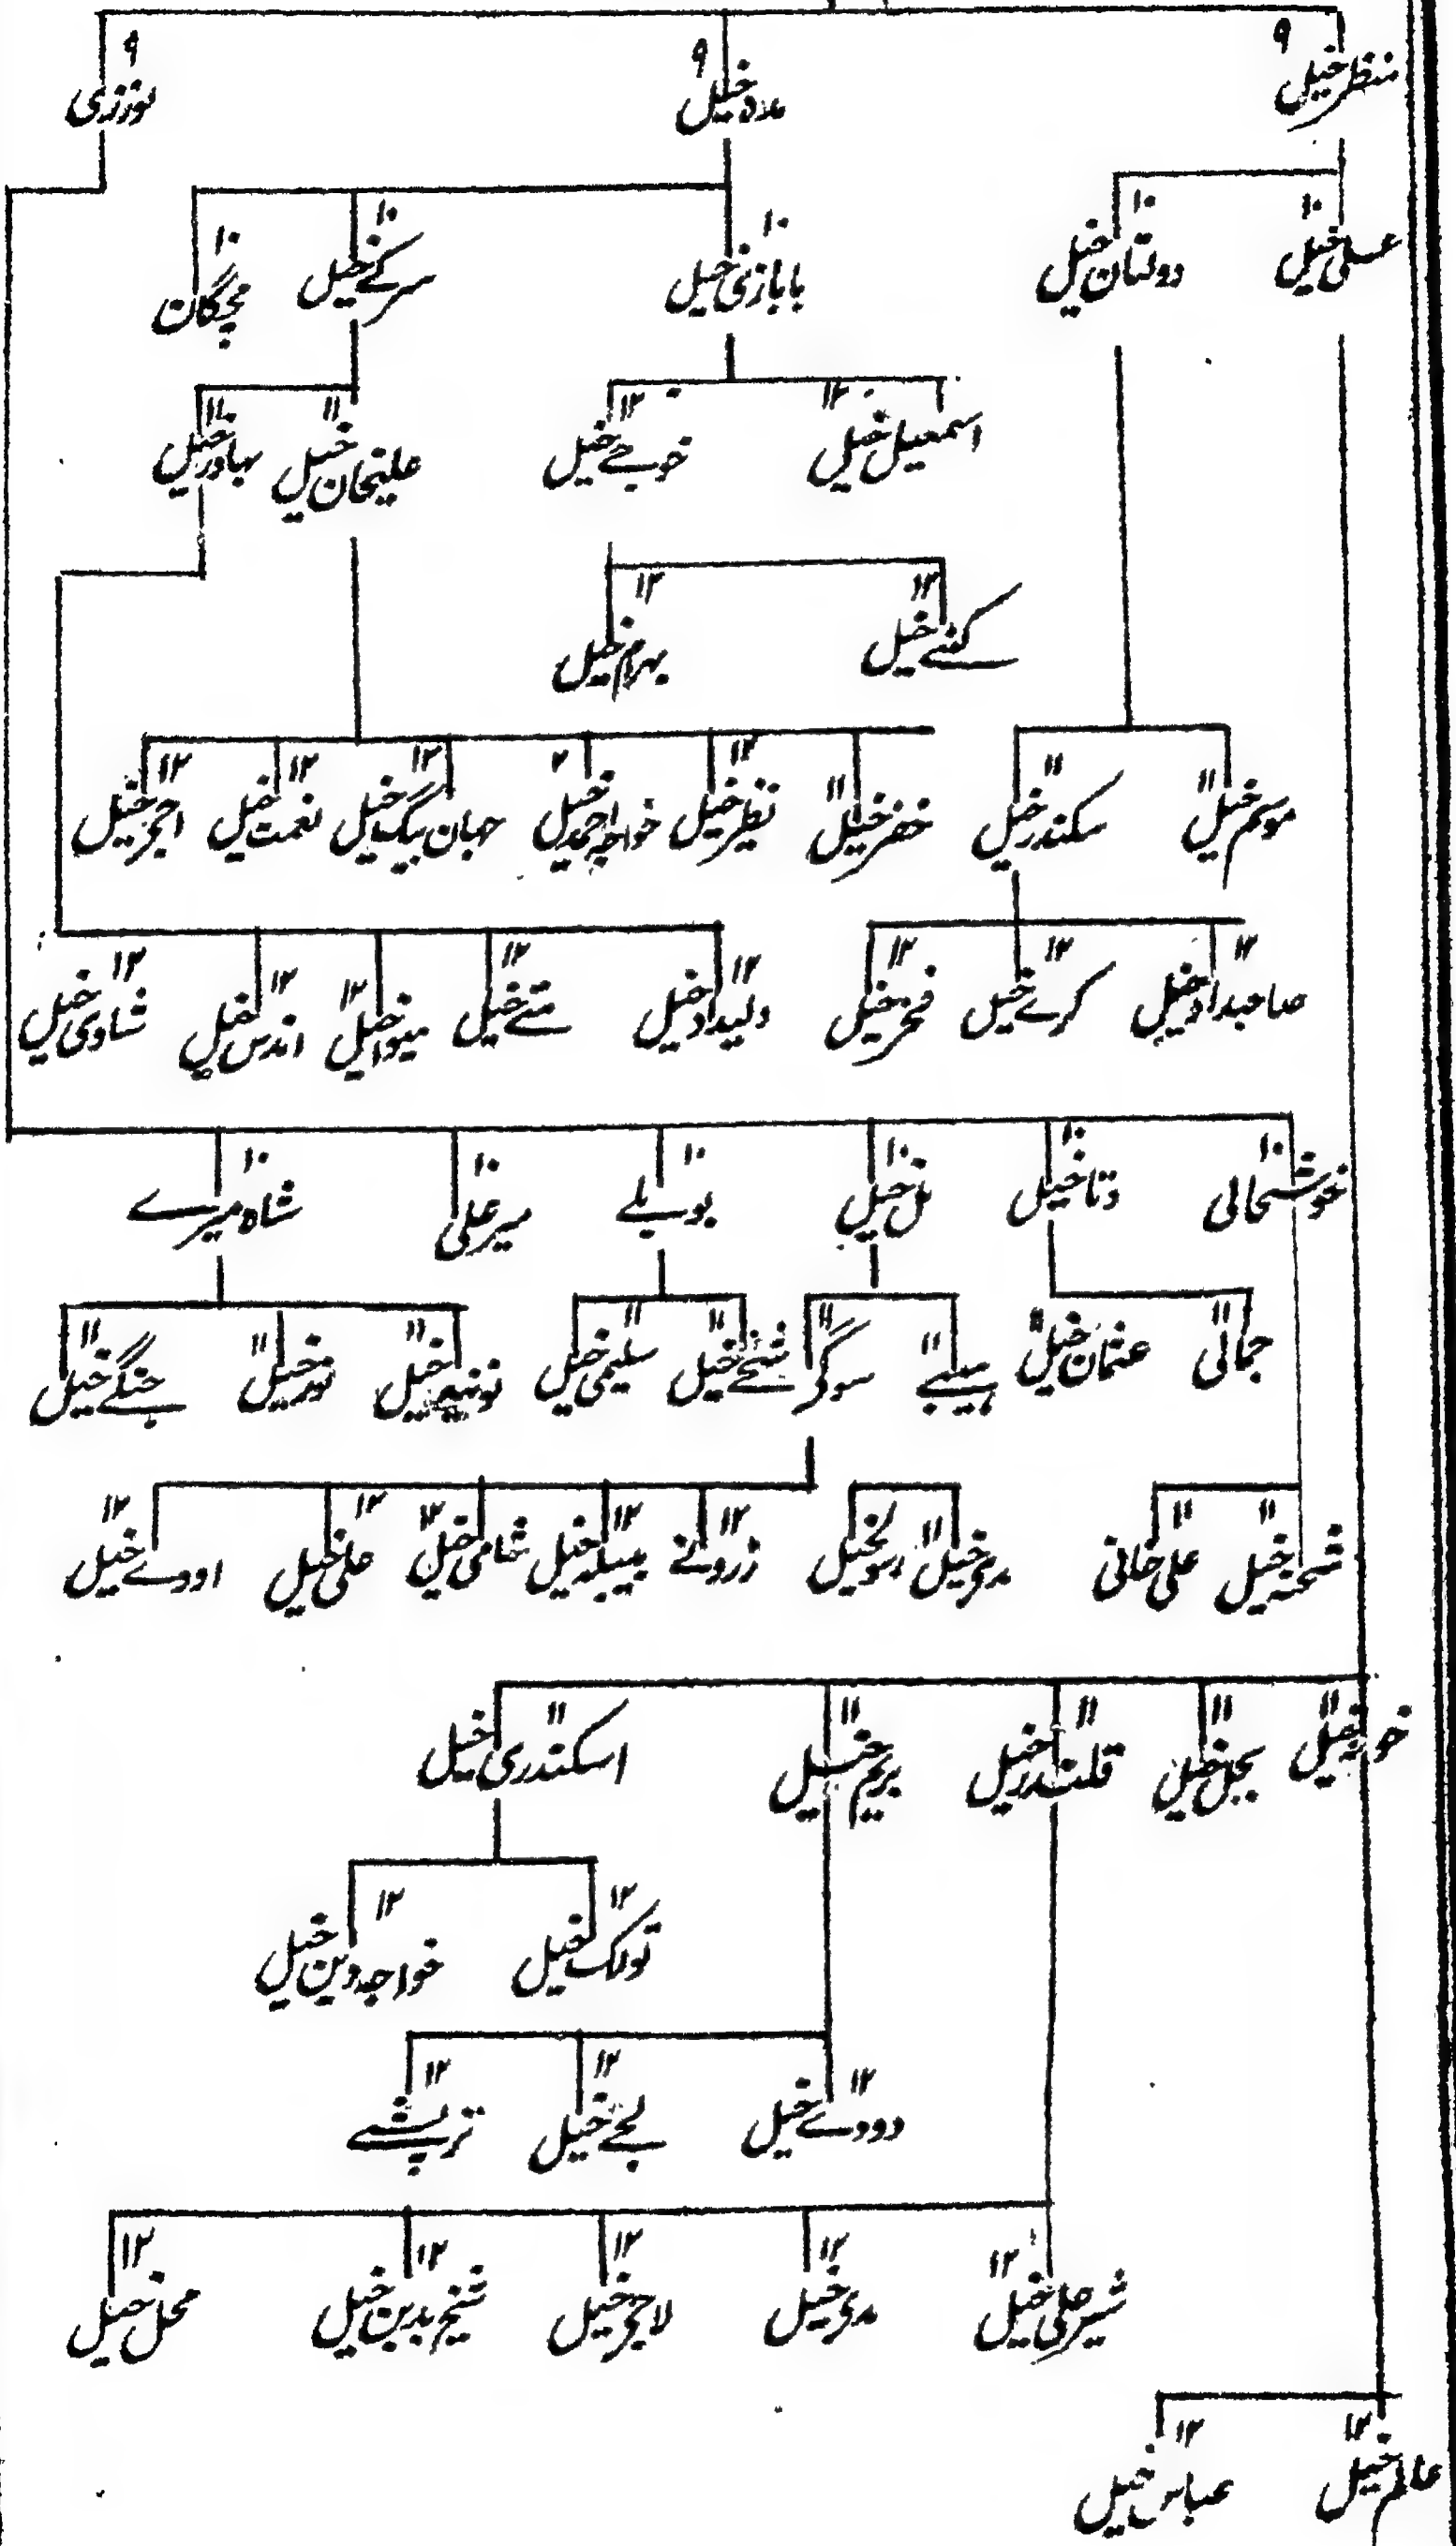 ۹ منظر خیل ۹ علاء خیل ۹ نوززی
۱۰ عسلی خیل ۱۰ دولتان خیل ۱۰ بابازی خیل ۱۰ سرکے خیل ۱۰ مچگان
۱۲ اسمعیل خیل ۱۲ خوبے خیل ۱۱ علیخان خیل ۱۱ بہادر خیل
۱۳ کفنے خیل ۱۳ بہرام خیل
۱۱ موسم خیل ۱۱ سکندر خیل ۱۱ خضر خیل ۱۲ نظر خیل ۲ خواجہ احمد خیل ۱۲ جہان بیگ خیل ۱۲ نعمت خیل ۱۲
۱۲ صاحبداد خیل ۱۲ کرے خیل ۱۲ فخر خیل ۱۲ دلیداد خیل ۱۲ متے خیل ۱۲ میوا خیل ۱۲ اندس خیل ۱۲ شادی خیل
۱۰ خوشحالی ۱۰ دتا خیل ۱۰ مل خیل ۱۰ بوبلے ۱۰ میر علی ۱۰ شاہ میرے
۱۱ جمالی ۱۱ عثمان خیل ۱۱ ہیبے ۱۱ سوکڑ ۱۱ شخے خیل ۱۱ سلیمی خیل ۱۱ ۱۱ نور خیل ۱۱ جنگے خیل
۱۱ شحنہ خیل ۱۱ علی خانی ۱۱ ۱۲ زرونے ۱۲ ۱۲ شامی خیل ۱۲ علی خیل ۱۲ اودے خیل
۱۱ ۱۱ بجل خیل ۱۱ قلندر خیل ۱۱ بریم خیل ۱۱ اسکندری خیل
۱۲ تولاک خیل ۱۲ خواجہ دین خیل
۱۲ دودے خیل ۱۲ لجے خیل ۱۲ ترپشے
۱۲ شیر علی خیل ۱۲ ۱۲ لاچر خیل ۱۲ شیخ بدین خیل ۱۲ محل خیل
۱۲ عالم خیل ۱۲ عباس خیل